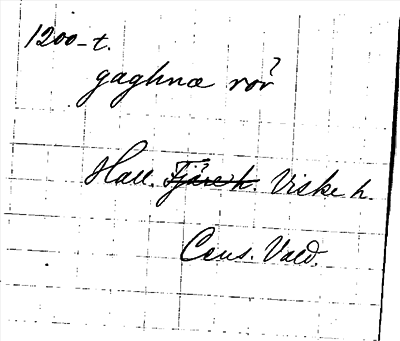 1200-t.
gaghnæ rör?
Hall. Fjäre h. Viske h.
Cens. Vald.